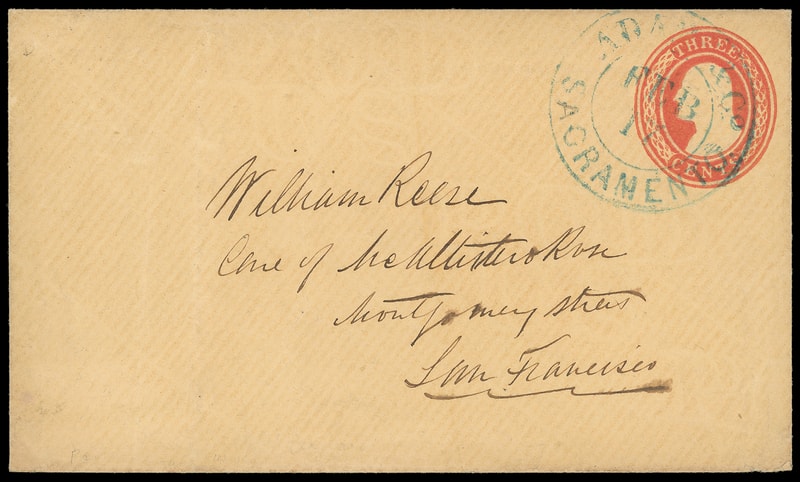 ADAMS & Co
FEB
SACRAMENTO
THREE
CENTS
William Reese
Care of McAllister & Rose
Montgomery Street
San Francisco